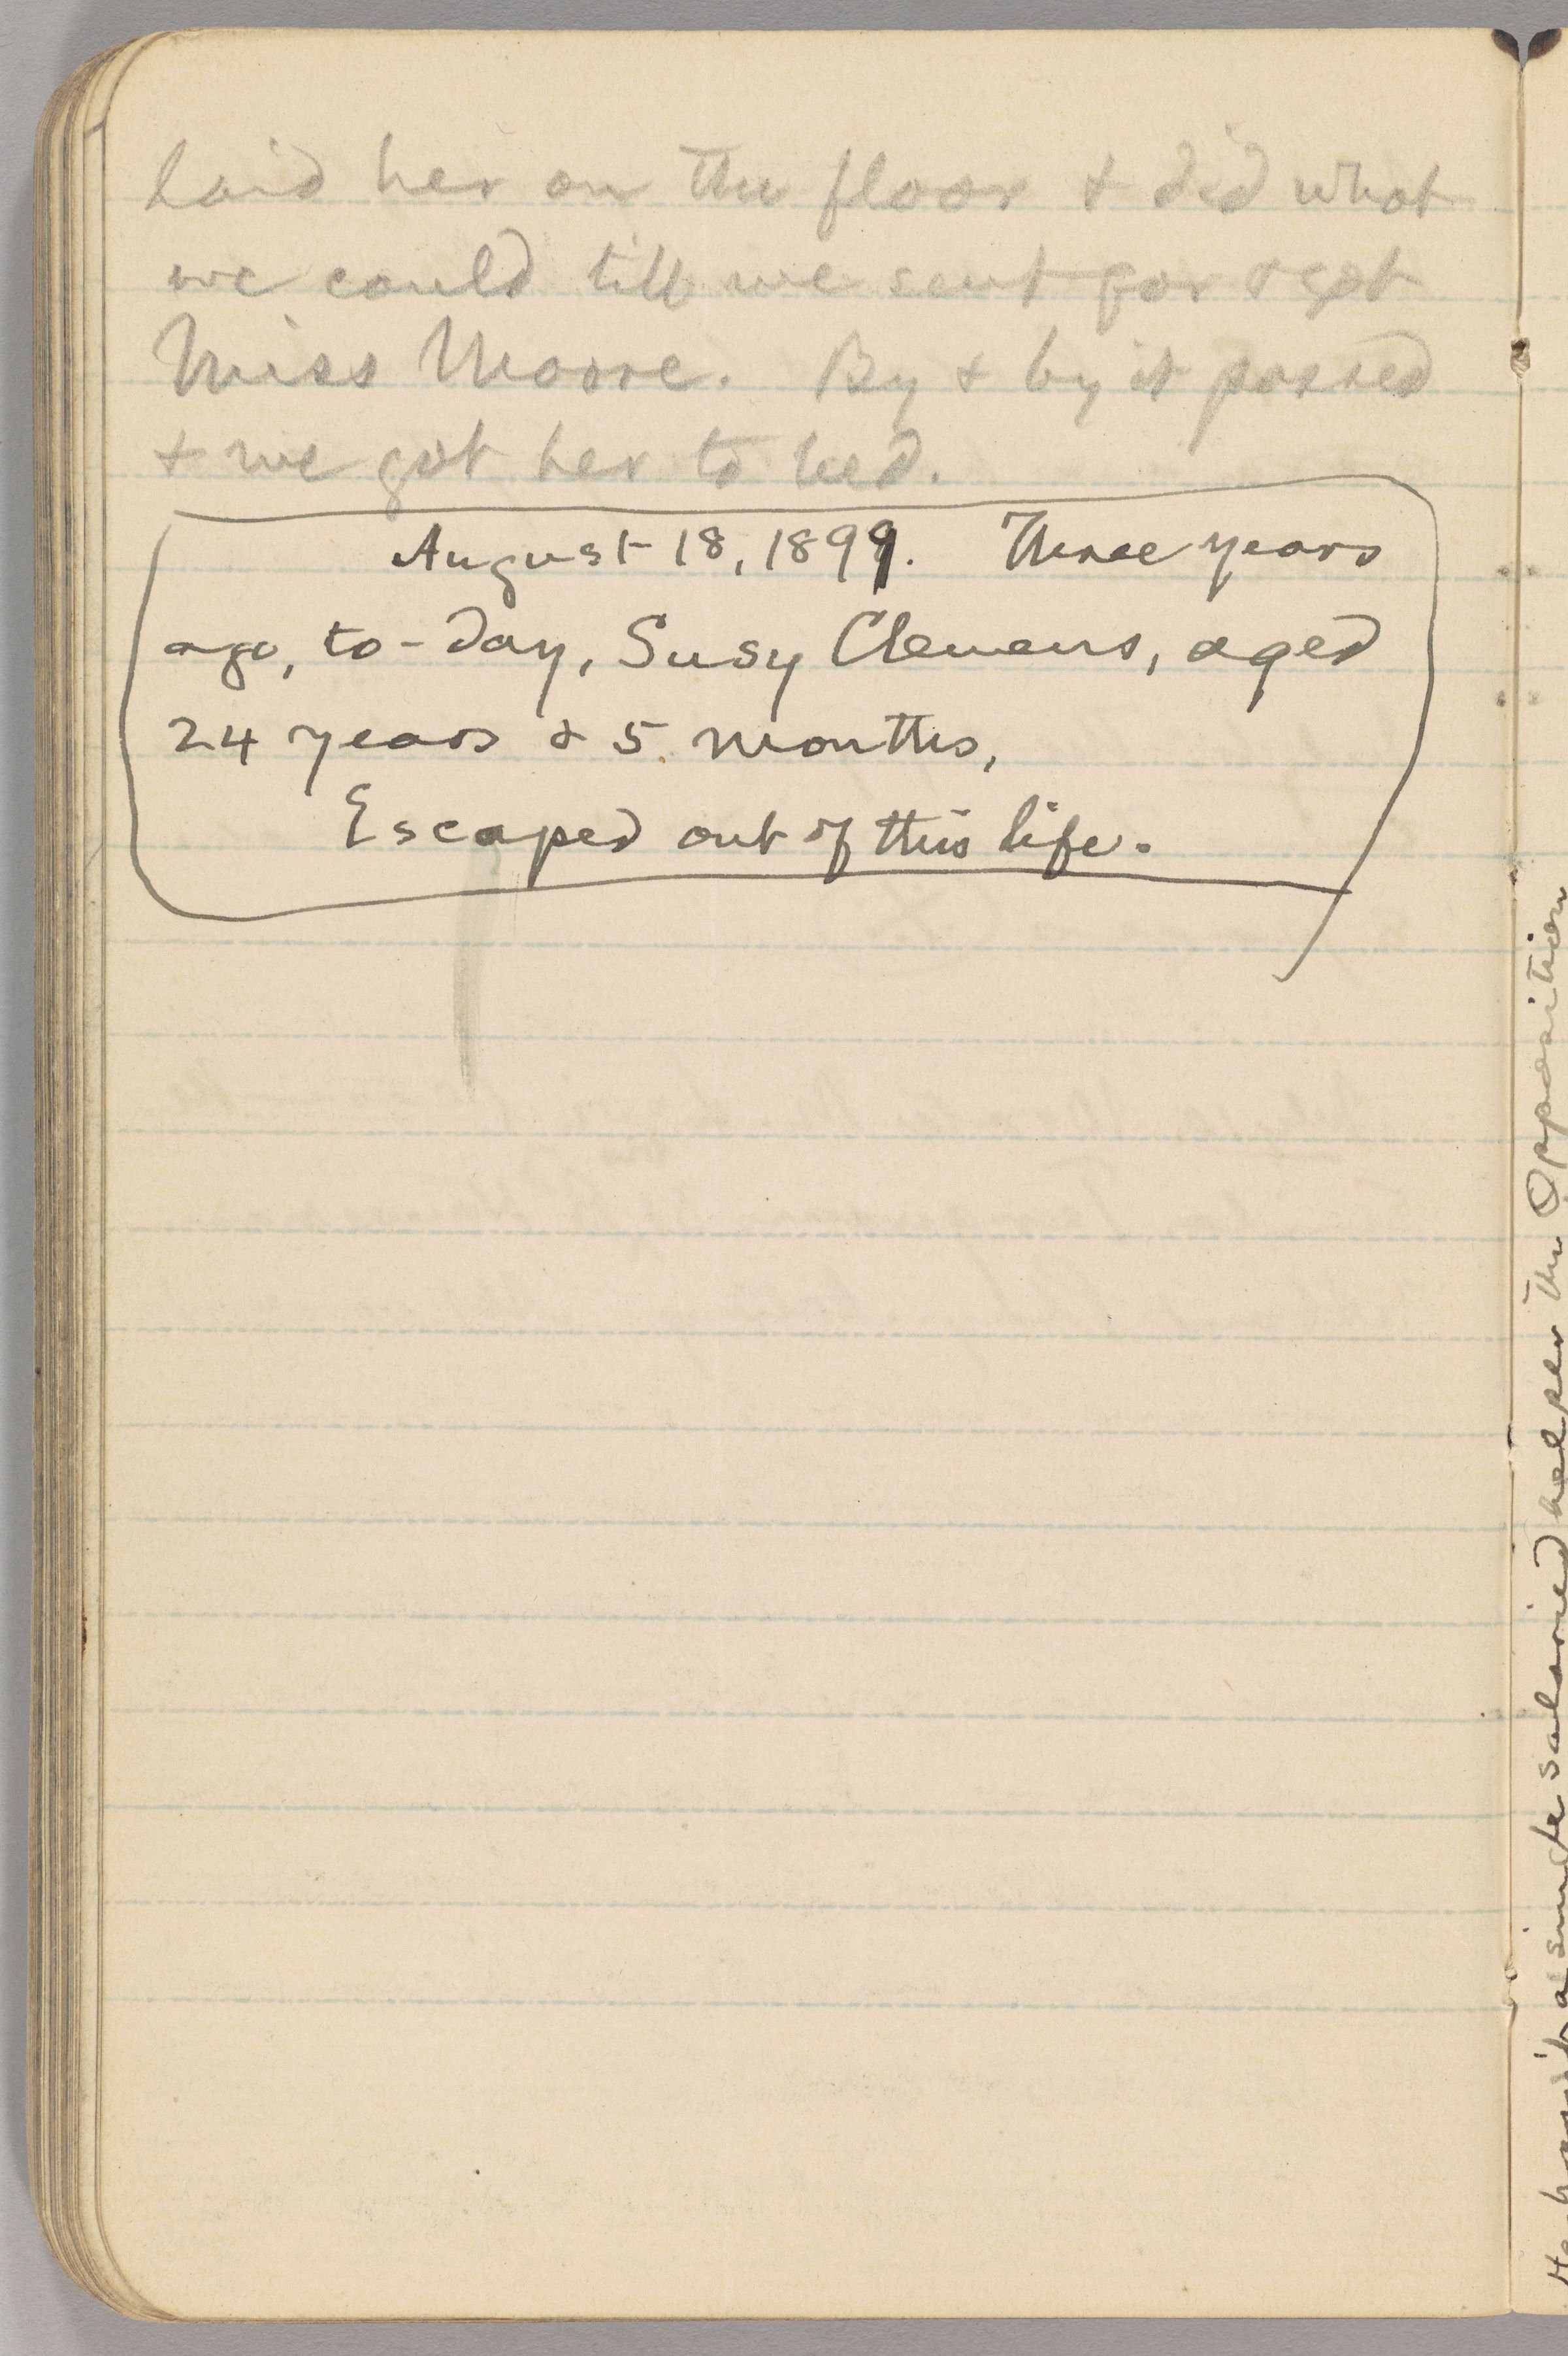 laid her on the floor & did what
we could till we sent for & got
Miss Moore. By & by it passed
& we got her to bed.
August 18, 1899. Three years
ago, to-day, Susy Clemens, aged
24 years & 5 months,
Escaped out of this life.
a single salaried helper the Opposition